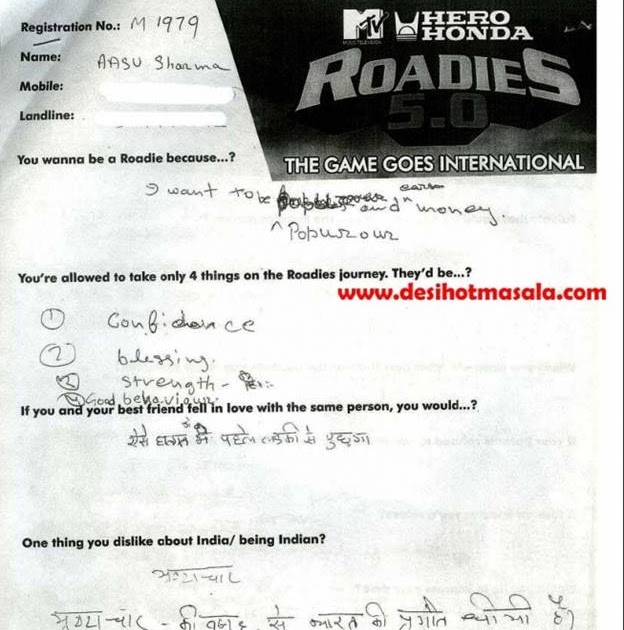 Registration No.: M 1979
Name: AASU Sharma
Mobile:
Landline:
MTV
MUSIC TELEVISION
HERO
HONDA
ROADIES
5.0
THE GAME GOES INTERNATIONAL
You wanna be a Roadie because...?
I want to be and earn money.
Popurour
You're allowed to take only 4 things on the Roadies journey. They'd be...?
www.desihotmasala.com
① Confidence
② blessing.
③ strength -
④ Good behaviour.
If you and your best friend fell in love with the same person, you would...?
ऐसे हालत में पहले लडकी से पुछुगा
One thing you dislike about India/ being Indian?
भ्रष्टाचार
की वजह से भारत की प्रगति है)